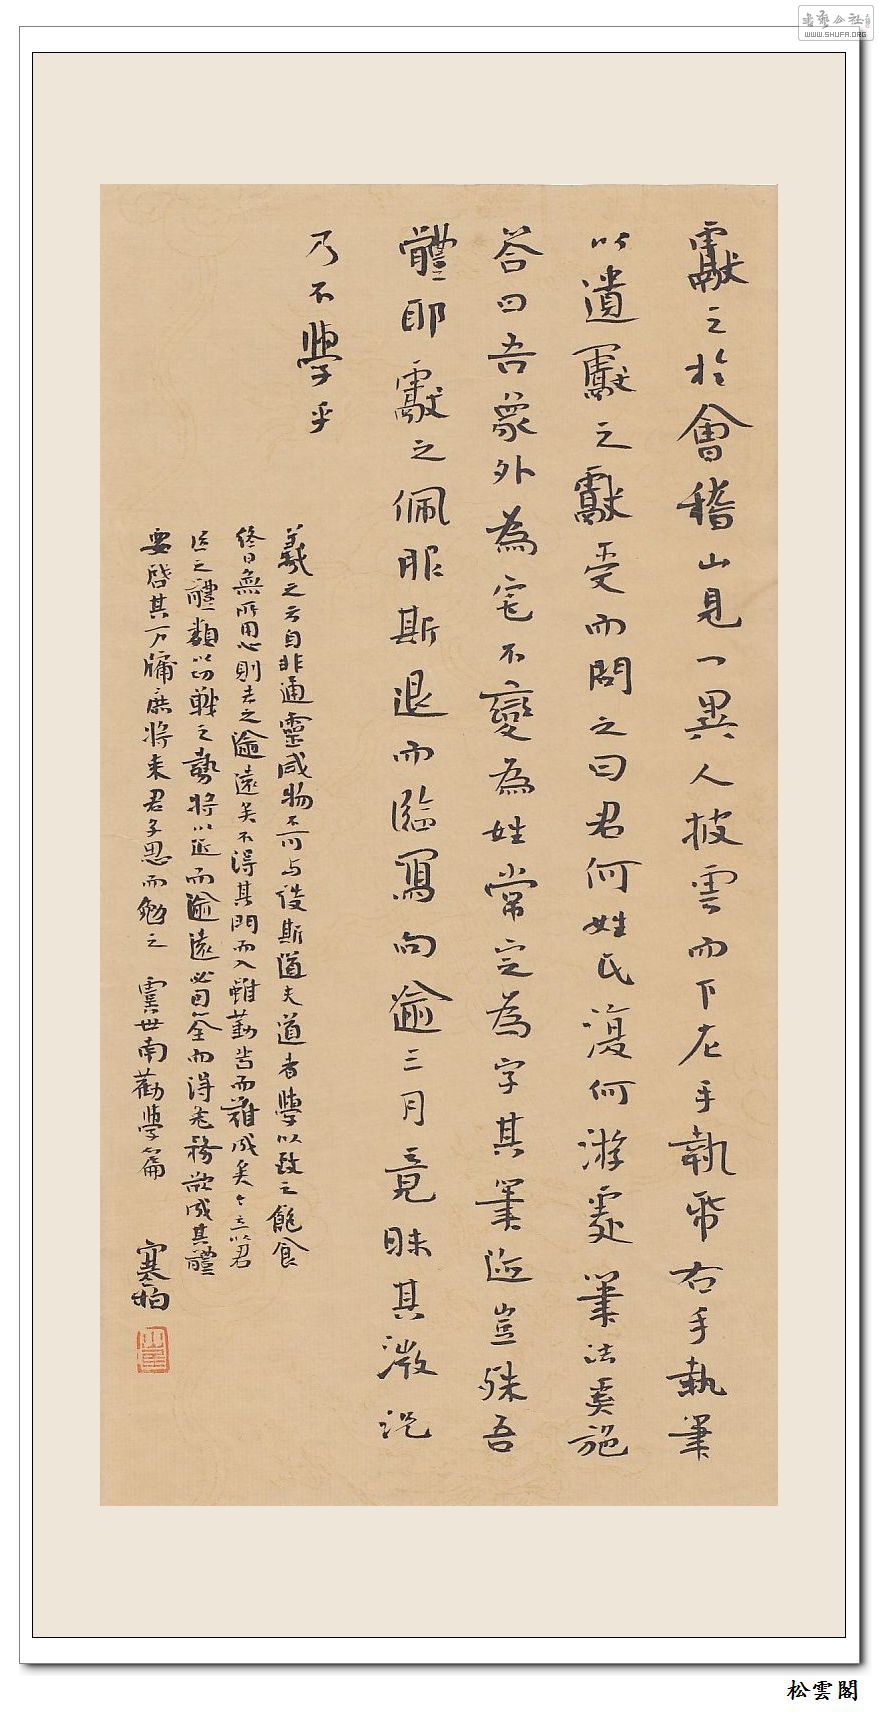 书艺公社
WWW.SHUFA.ORG
獻之於會稽山見一異人披雲而下左手執帋右手執筆
以遺獻之獻受而問之曰君何姓氏復何游處筆法奚施
答曰吾象外為宅不變為姓常定為字其筆迹豈殊吾
體耶獻之佩服斯退而臨寫向逾三月竟昧其微況
乃不學乎
羲之云自非通靈感物不可与談斯道夫道者學以致之飽食
終日無所用心則去之逾遠矣不得其門而入雖勤苦而難成矣今立以君
臣之體類以攻戰之勢將以近而逾遠必因筌而得矣務欲成其體
要啓其戶牖庶將來君子思而勉之 虞世南勸學篇 寒柏
松雲閣